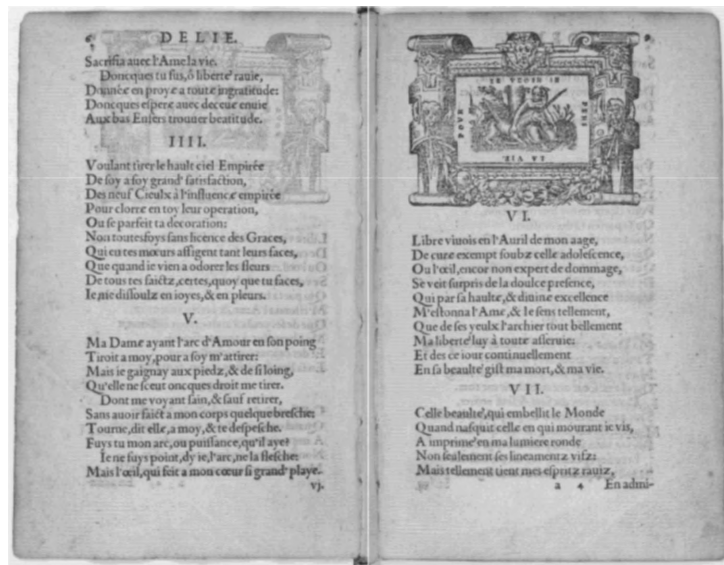 6 DELIE.
Sacrifia auec l'Ame la vie.
Doncques tu fus, ô liberté rauie,
Donnée en proye a toute ingratitude:
Doncques espere auec deceue enuie
Aux bas Enfers trouuer beatitude.
IIII.
Voulant tirer le hault ciel Empirée
De soy a soy grand' satisfaction,
Des neuf Cieulx à l'influence empirée
Pour clorre en toy leur operation,
Ou se parfeit ta decoration:
Non toutesfoys sans licence des Graces,
Qui en tes mœurs affigent tant leurs faces,
Que quand ie vien a odorer les fleurs
De tous tes faictz, certes, quoy que tu faces,
Ie me dissoulz en ioyes, & en pleurs.
V.
Ma Dame ayant l'arc d'Amour en son poing
Tiroit a moy, pour a soy m'attirer:
Mais ie gaignay aux piedz, & de si loing,
Qu'elle ne sceut oncques droit me tirer.
Dont me voyant sain, & sauf retirer,
Sans auoir faict a mon corps quelque bresche:
Tourne, dit elle, a moy, & te despesche.
Fuys tu mon arc, ou puissance, qu'il aye?
Ie ne fuys point, dy ie, l'arc, ne la flesche:
Mais l'œil, qui feit a mon cœur si grand' playe.
vj.
POVR
TE VEOIR IE
PERS
LA VIE
VI.
Libre viuois en l'Auril de mon aage,
De cure exempt soubz celle adolescence,
Ou l'œil, encor non expert de dommage,
Se veit surpris de la doulce presence,
Qui par sa haulte, & diuine excellence
M'estonna l'Ame, & le sens tellement,
Que de ses yeulx l'archier tout bellement
Ma liberté luy à toute asseruie:
Et des ce iour continuellement
En sa beaulté gist ma mort, & ma vie.
VII.
Celle beaulté, qui embellit le Monde
Quand nasquit celle en qui mourant ie vis,
A imprimé en ma lumiere ronde
Non seulement ses lineamentz vifz:
Mais tellement tient mes espritz rauiz,
a 4 En admi-